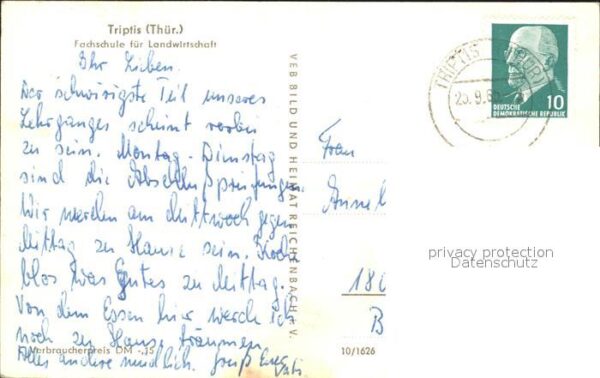 Triptis (Thür.)
Fachschule für Landwirtschaft
Ihr Lieben.
Der schwierigste Teil unseres
Lehrganges scheint vorbei
zu sein. Montag - Dienstag
sind die Abschlußprüfungen
Wir werden am Mittwoch gegen
Mittag zu Hause sein. Koch
blos was Gutes zu Mittag.
Von dem Essen hier werde ich
noch zu Hause träumen.
Alles andere mündlich. Gruß Euer
Verbraucherpreis DM -,15
VEB BILD UND HEIMAT REICHENBACH i. V.
10/1626
TRIPTIS
25.9.6
DEUTSCHE
DEMOKRATISCHE REPUBLIK
10
Frau
Anne
180
B
privacy protection
Datenschutz